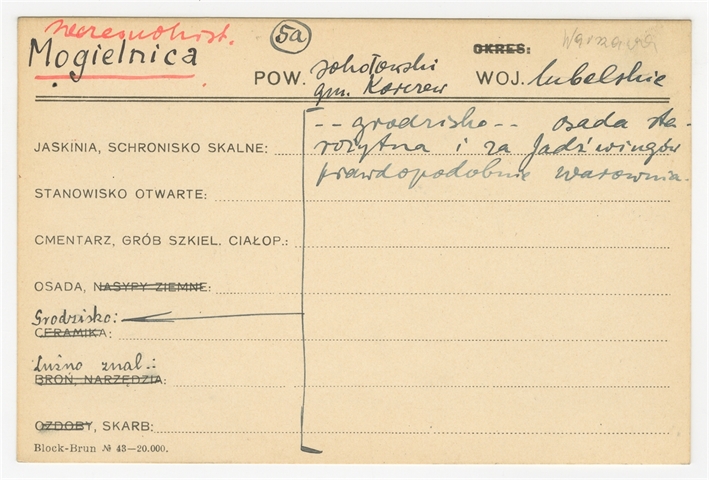 wczesnohist.
Mogielnica
5a
POW. sokołowski
gm. Korczew
OKRES:
Warszawa
WOJ. lubelskie
-- grodzisko -- osada sta-
rożytna i za Jadźwingów
prawdopodobnie warownia.
JASKINIA, SCHRONISKO SKALNE:
STANOWISKO OTWARTE:
CMENTARZ, GRÓB SZKIEL. CIAŁOP.:
OSADA, NASYPY ZIEMNE:
Grodzisko:
CERAMIKA:
Luźno znal.:
BROŃ, NARZĘDZIA:
OZDOBY, SKARB:
Block-Brun № 43—20.000.